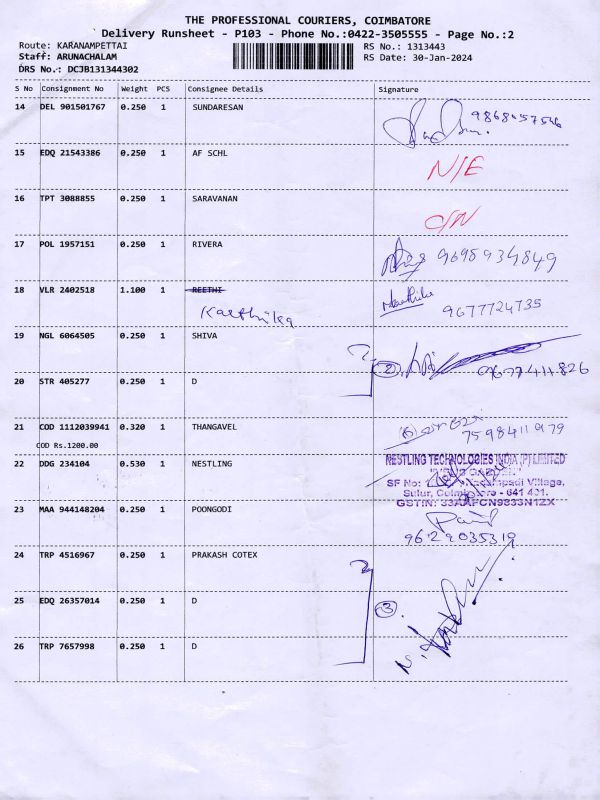 THE PROFESSIONAL COURIERS, COIMBATORE
Delivery Runsheet - P103 - Phone No.:0422-3505555 - Page No.:2
Route: KARANAMPETTAI RS No.: 1313443
Staff: ARUNACHALAM RS Date: 30-Jan-2024
DRS No.: DCJB131344302
S No Consignment No Weight PCS Consignee Details Signature
14 DEL 901501767 0.250 1 SUNDARESAN
15 EDQ 21543386 0.250 1 AF SCHL N/E
16 TPT 3088855 0.250 1 SARAVANAN C/N
17 POL 1957151 0.250 1 RIVERA 9695934849
18 VLR 2402518 1.100 1 REETHI
Karthika 9677724735
19 NGL 6064505 0.250 1 SHIVA
2 9677411826
20 STR 405277 0.250 1 D
21 COD 1112039941 0.320 1 THANGAVEL 7598411979
COD Rs.1200.00
22 DDG 234104 0.530 1 NESTLING
NESTLING TECHNOLOGIES INDIA (P) LIMITED
SF No: Village,
Sulur, Coimbatore - 641 401.
GSTIN: 33AAFCN9833N1ZX
23 MAA 944148204 0.250 1 POONGODI
9629035319
24 TRP 4516967 0.250 1 PRAKASH COTEX
25 EDQ 26357014 0.250 1 D 3
26 TRP 7657998 0.250 1 D